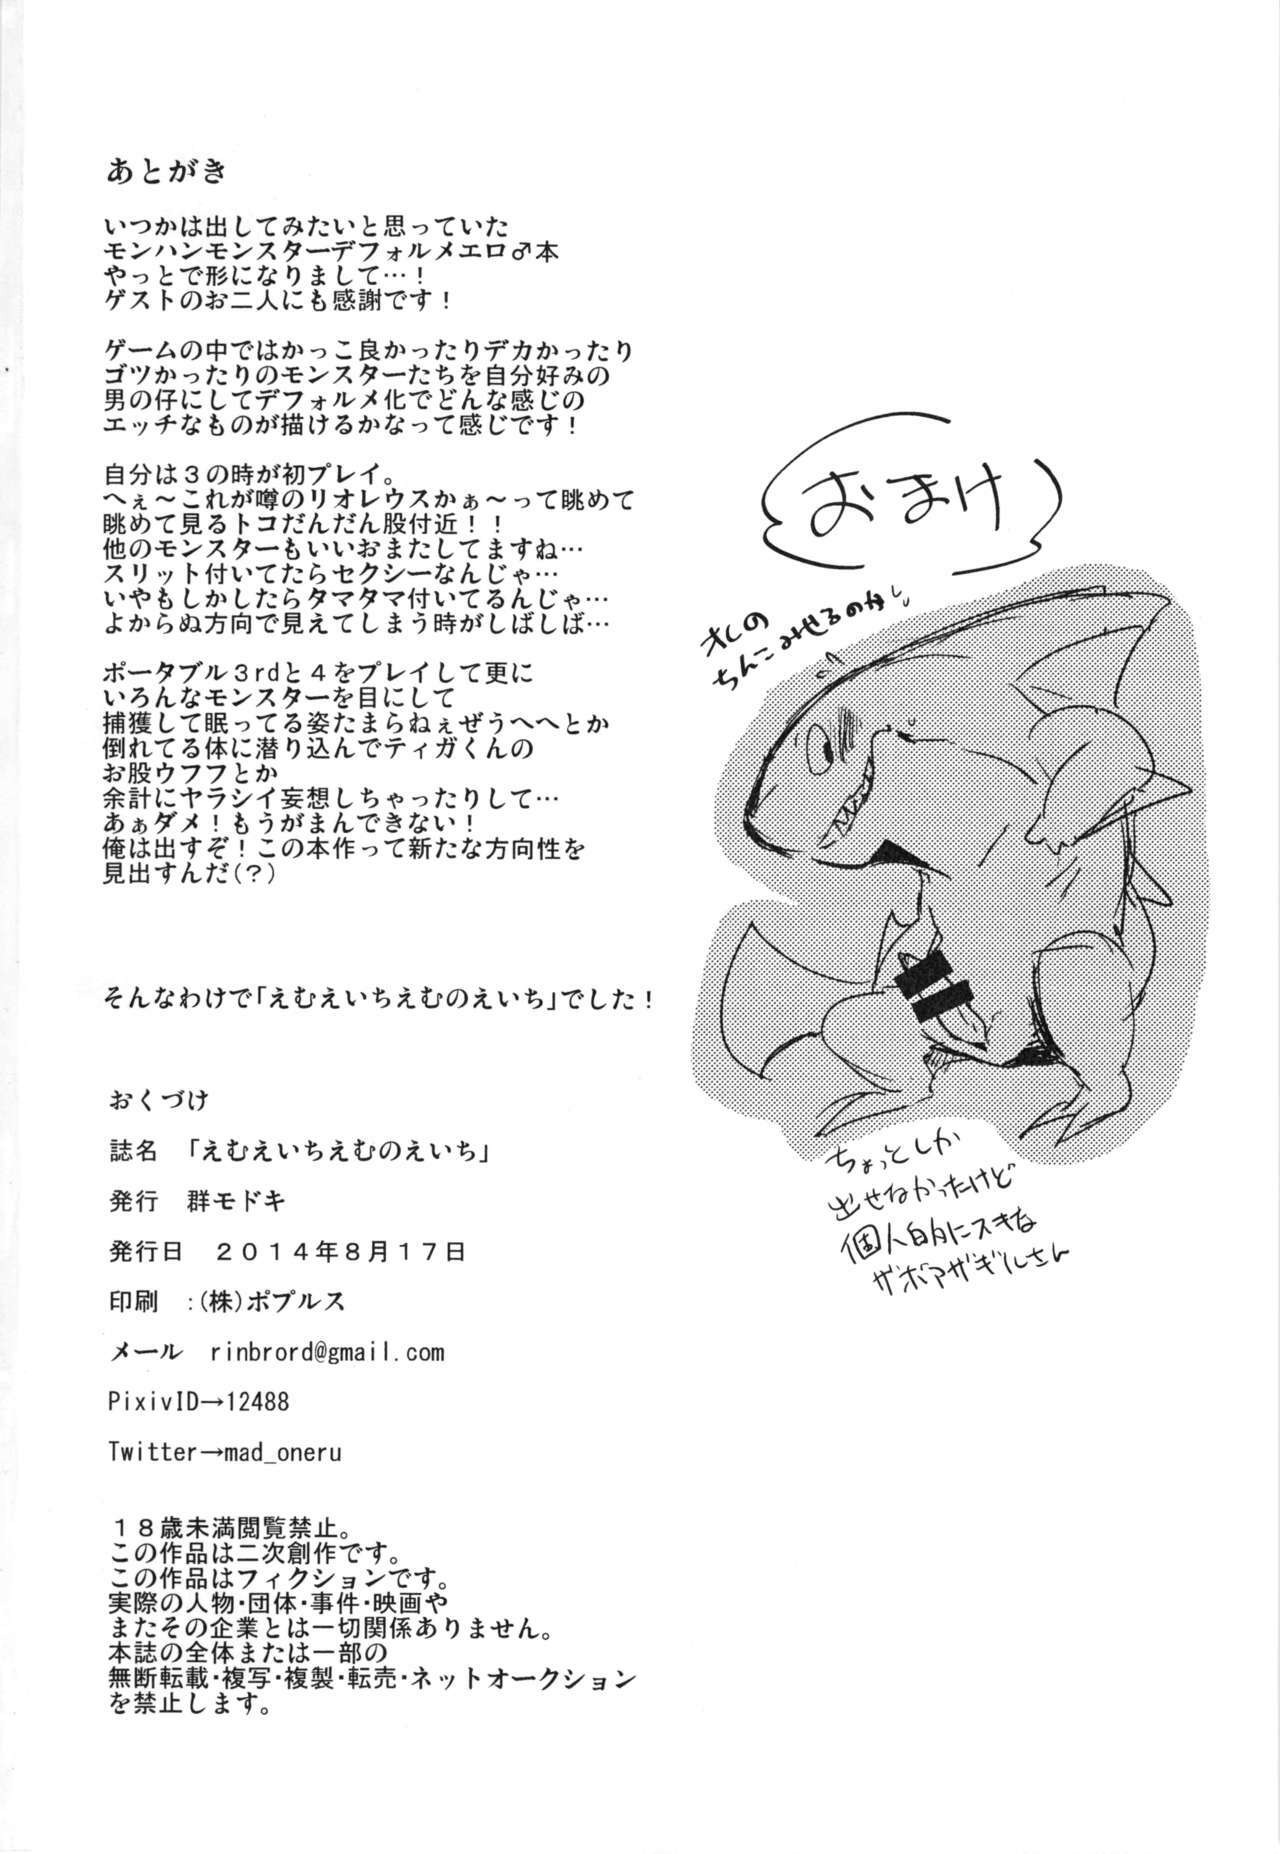 あとがき
いつかは出してみたいと思っていた
モンハンモンスターデフォルメエロ♂本
やっとで形になりまして…！
ゲストのお二人にも感謝です！
ゲームの中ではかっこ良かったりデカかったり
ゴツかったりのモンスターたちを自分好みの
男の仔にしてデフォルメ化でどんな感じの
エッチなものが描けるかなって感じです！
自分は３の時が初プレイ。
へぇ～これが噂のリオレウスかぁ～って眺めて
眺めて見るトコだんだん股付近！！
他のモンスターもいいおまたしてますね…
スリット付いてたらセクシーなんじゃ…
いやもしかしたらタマタマ付いてるんじゃ…
よからぬ方向で見えてしまう時がしばしば…
ポータブル３rdと４をプレイして更に
いろんなモンスターを目にして
捕獲して眠ってる姿たまらねぇぜうへへとか
倒れてる体に潜り込んでティガくんの
お股ウフフとか
余計にヤラシイ妄想しちゃったりして…
あぁダメ！もうがまんできない！
俺は出すぞ！この本作って新たな方向性を
見出すんだ(？)
そんなわけで「えむえいちえむのえいち」でした！
おくづけ
誌名　「えむえいちえむのえいち」
発行　群モドキ
発行日　２０１４年８月１７日
印刷　:(株)ポプルス
メール　rinbrord@gmail.com
PixivID→12488
Twitter→mad_oneru
１８歳未満閲覧禁止。
この作品は二次創作です。
この作品はフィクションです。
実際の人物･団体･事件･映画や
またその企業とは一切関係ありません。
本誌の全体または一部の
無断転載･複写･複製･転売･ネットオークション
を禁止します。
おまけ
オレの
ちんこみせるのか
ちょっとしか
出せなかったけど
個人的にスキな
ザボアザギルさん